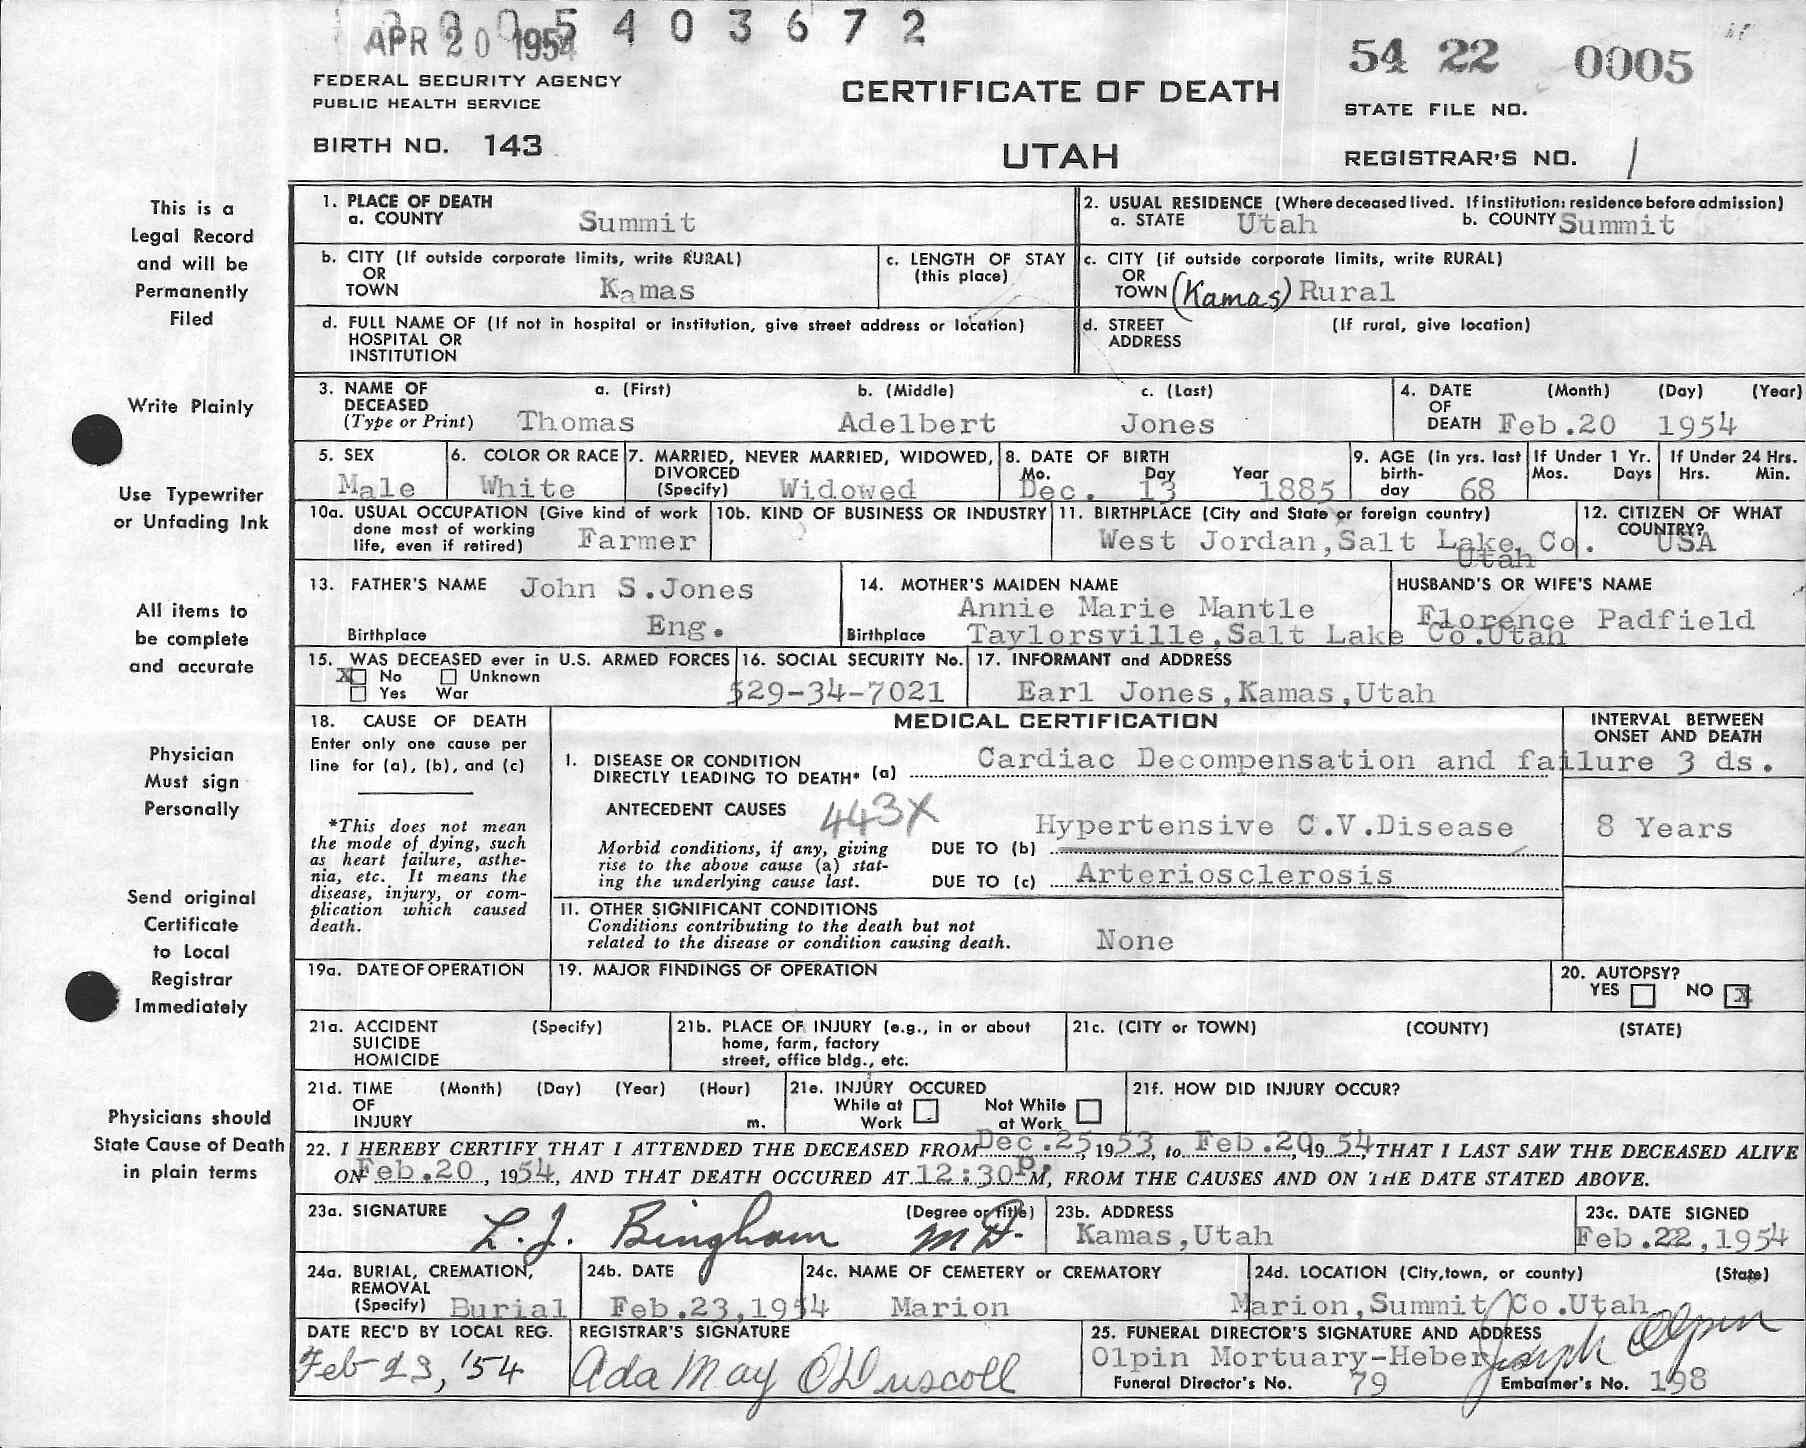 5 4 0 3 6 7 2
APR 20 1954
54 22 0005
FEDERAL SECURITY AGENCY
PUBLIC HEALTH SERVICE
CERTIFICATE OF DEATH
STATE FILE NO.
BIRTH NO. 143
UTAH
REGISTRAR'S NO. 1
This is a
Legal Record
and will be
Permanently
Filed
Write Plainly
Use Typewriter
or Unfading Ink
All items to
be complete
and accurate
Physician
Must sign
Personally
Send original
Certificate
to Local
Registrar
Immediately
Physicians should
State Cause of Death
in plain terms
1. PLACE OF DEATH
a. COUNTY Summit
2. USUAL RESIDENCE (Where deceased lived. If institution: residence before admission)
a. STATE Utah b. COUNTY Summit
b. CITY (If outside corporate limits, write RURAL)
OR
TOWN Kamas
c. LENGTH OF STAY
(this place)
c. CITY (if outside corporate limits, write RURAL)
OR
TOWN (Kamas) Rural
d. FULL NAME OF (If not in hospital or institution, give street address or location)
HOSPITAL OR
INSTITUTION
d. STREET (If rural, give location)
ADDRESS
3. NAME OF a. (First) b. (Middle) c. (Last)
DECEASED
(Type or Print) Thomas Adelbert Jones
4. DATE (Month) (Day) (Year)
OF
DEATH Feb.20 1954
5. SEX
Male
6. COLOR OR RACE
White
7. MARRIED, NEVER MARRIED, WIDOWED,
DIVORCED
(Specify) Widowed
8. DATE OF BIRTH
Mo. Day Year
Dec. 13 1885
9. AGE (in yrs. last
birth-
day 68
If Under 1 Yr.
Mos. Days
If Under 24 Hrs.
Hrs. Min.
10a. USUAL OCCUPATION (Give kind of work
done most of working
life, even if retired) Farmer
10b. KIND OF BUSINESS OR INDUSTRY
11. BIRTHPLACE (City and State or foreign country)
West Jordan,Salt Lake Co.
Utah
12. CITIZEN OF WHAT
COUNTRY?
USA
13. FATHER'S NAME John S.Jones
Birthplace Eng.
14. MOTHER'S MAIDEN NAME
Annie Marie Mantle
Birthplace Taylorsville,Salt Lake Co.Utah
HUSBAND'S OR WIFE'S NAME
Florence Padfield
15. WAS DECEASED ever in U.S. ARMED FORCES
X No Unknown
Yes War
16. SOCIAL SECURITY No.
529-34-7021
17. INFORMANT and ADDRESS
Earl Jones,Kamas,Utah
18. CAUSE OF DEATH
Enter only one cause per
line for (a), (b), and (c)
*This does not mean
the mode of dying, such
as heart failure, asthe-
nia, etc. It means the
disease, injury, or com-
plication which caused
death.
MEDICAL CERTIFICATION
INTERVAL BETWEEN
ONSET AND DEATH
I. DISEASE OR CONDITION
DIRECTLY LEADING TO DEATH* (a) Cardiac Decompensation and failure 3 ds.
ANTECEDENT CAUSES 443X
Morbid conditions, if any, giving
rise to the above cause (a) stat-
ing the underlying cause last.
DUE TO (b) Hypertensive C.V.Disease 8 Years
DUE TO (c) Arteriosclerosis
II. OTHER SIGNIFICANT CONDITIONS
Conditions contributing to the death but not
related to the disease or condition causing death. None
19a. DATE OF OPERATION
19. MAJOR FINDINGS OF OPERATION
20. AUTOPSY?
YES NO X
21a. ACCIDENT (Specify)
SUICIDE
HOMICIDE
21b. PLACE OF INJURY (e.g., in or about
home, farm, factory
street, office bldg., etc.
21c. (CITY or TOWN) (COUNTY) (STATE)
21d. TIME (Month) (Day) (Year) (Hour)
OF
INJURY m.
21e. INJURY OCCURED
While at Not While
Work at Work
21f. HOW DID INJURY OCCUR?
22. I HEREBY CERTIFY THAT I ATTENDED THE DECEASED FROM Dec.25, 1953, to Feb.20, 1954, THAT I LAST SAW THE DECEASED ALIVE
ON Feb.20, 1954, AND THAT DEATH OCCURED AT 12:30 P.M, FROM THE CAUSES AND ON THE DATE STATED ABOVE.
23a. SIGNATURE (Degree or title)
L. J. Bingham M D.
23b. ADDRESS
Kamas,Utah
23c. DATE SIGNED
Feb.22,1954
24a. BURIAL, CREMATION,
REMOVAL
(Specify) Burial
24b. DATE
Feb.23,1954
24c. NAME OF CEMETERY or CREMATORY
Marion
24d. LOCATION (City,town, or county) (State)
Marion,Summit Co.Utah
DATE REC'D BY LOCAL REG.
Feb 23, '54
REGISTRAR'S SIGNATURE
Ada May O'Driscoll
25. FUNERAL DIRECTOR'S SIGNATURE AND ADDRESS
Olpin Mortuary-Heber Joseph Olpin
Funeral Director's No. 79 Embalmer's No. 198